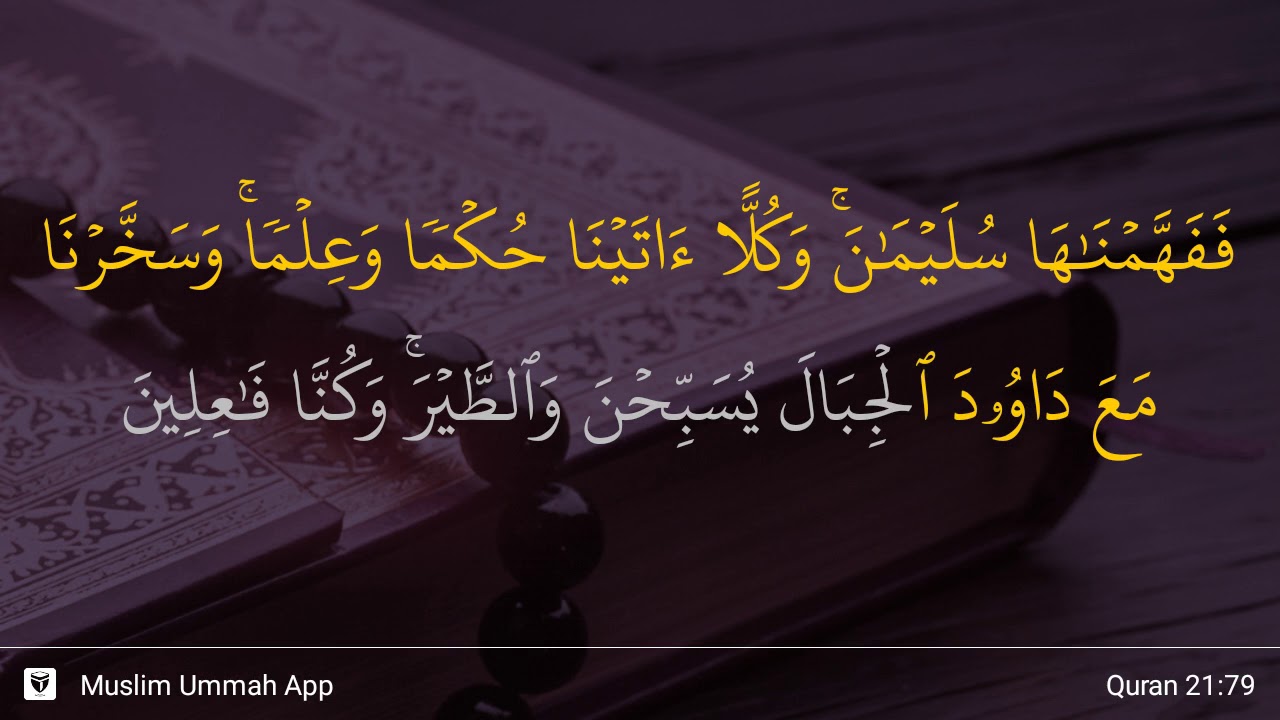 فَفَهَّمْنَـٰهَا سُلَيْمَـٰنَ ۚ وَكُلًّا ءَاتَيْنَا حُكْمًا وَعِلْمًا ۚ وَسَخَّرْنَا
مَعَ دَاوُۥدَ ٱلْجِبَالَ يُسَبِّحْنَ وَٱلطَّيْرَ ۚ وَكُنَّا فَـٰعِلِينَ
Muslim Ummah App
Quran 21:79